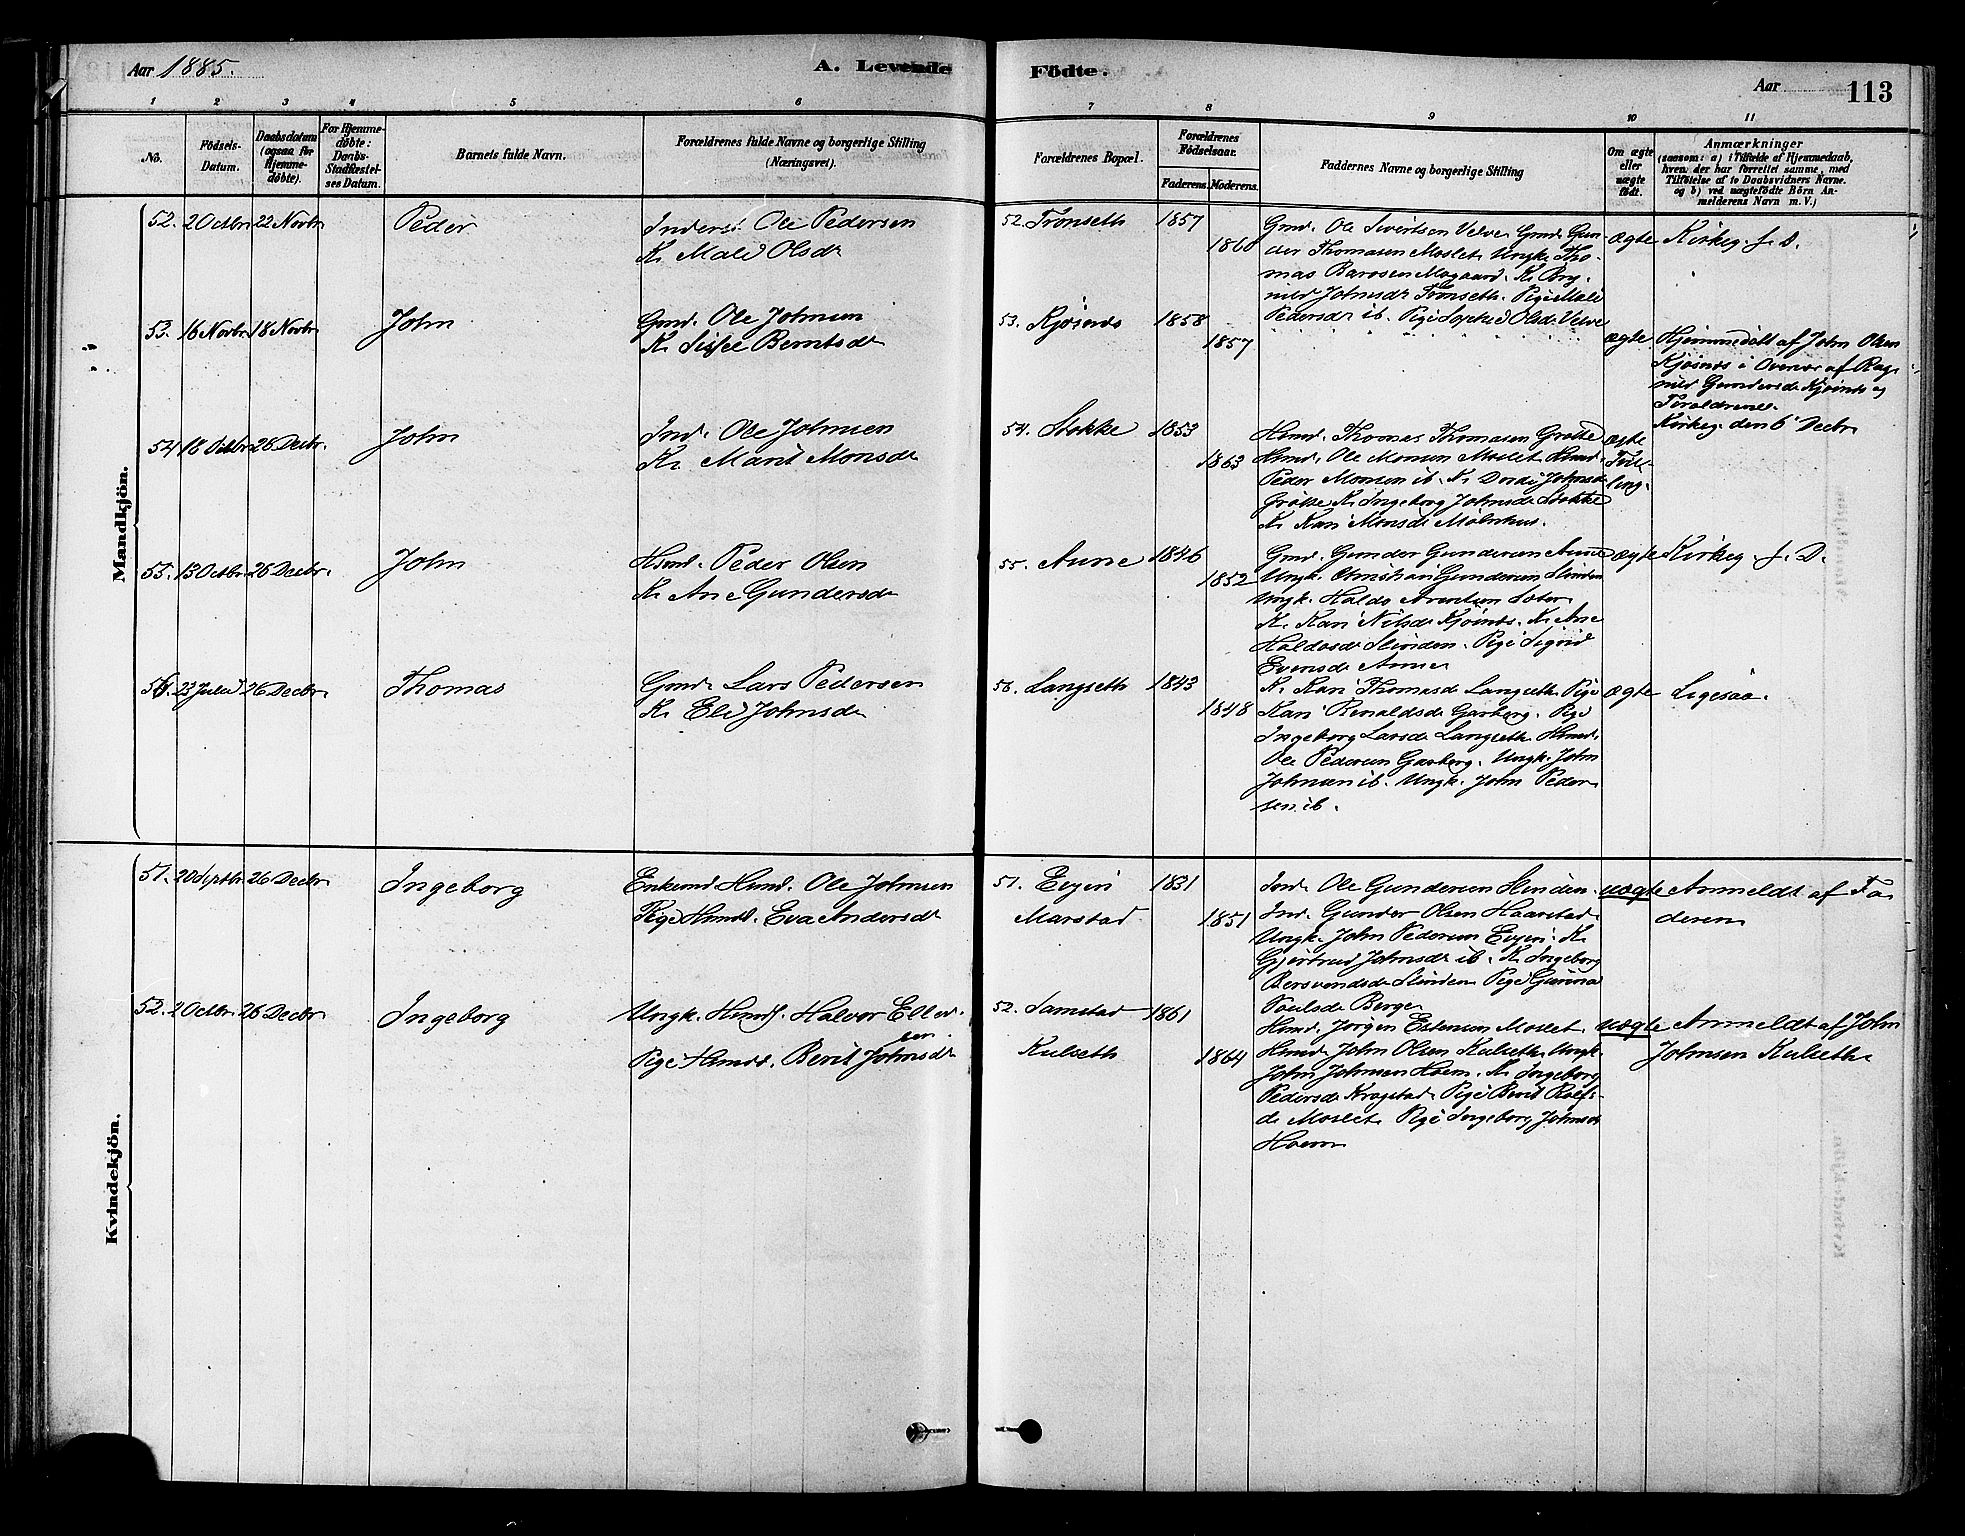 Aar 1885. A. Levende
Födte. Aar 113
1 2 3 4 5 6
7 8 9 10 11
No. Födsels-Datum. Daabsdatum (ogsaa for Hjemme-døbte). For Hjemme-døbte: Daabs-Stadfæstel-ses Datum. Barnets fulde Navn. Forældrenes fulde Navne og borgerlige Stilling (Næringsvei).
Forældrenes Bopæl. Forældrenes Fødselsaar. Faderens. Moderens. Faddernes Navne og borgerlige Stilling Om ægte eller uægte født. Anmærkninger
(saasom: a) i Tilfælde af Hjemmedaab,
hven der har forrettet samme, med
Tilføielse af to Daabsvidners Navne.
og b) ved uægtefødte Börn An-
melderens Navn m. V.)
Mandkjön.
52. 2 Octbr 22 Novbr Peder Inderst Ole Pedersen
K. Mali Olsdr
52. Tronseth 1857 1860
Gmd. Ole Sivertsen Velve Gmd. Gun-
der Thomasen Moslet Ungk. Tho-
mas Barosen Mogaard. K. Bry-
nild Johnsdr Tronseth. Pige Mali
Pedersdr ib. Pige Olsdr Velve
ægte Kirkeg. f. D.
53. 16 Novbr 18 Novbr John Gmd. Ole Johnsen
K. Sissel Berntsdr
53. Kjøsnes 1858 1857
ægte Hjemmedøbt af John Olsen
Kjøsnes i Overvær af Rag-
nild Gundersdr Kjøsnes og
Forældrene.
Kirkeg. den 6 Decbr
54 18 Octbr 26 Decbr. John Ind. Ole Johnsen
K. Marit Monsdr
54. Stokke 1853 1863
Hsmd. Thomas Thomasen Grøtte
Hsmd. Ole Monsen Moslet Hsmd.
Peder Monsen ib. K. Dordi Johnsdr
Grøtte K. Ingeborg Johnsdr Stokke
K. Kari Monsdr Mølnhus.
ægte
Tvil-
ling.
55. 13 Octbr. 26 Decbr. John Hsmd. Peder Olsen
K. Ane Gundersdr
55. Aune 1846 1852
Gmd. Gunder Gundersen Aune
Ungk. Gundersen Slinden
Ungk. Haldo Arentsen
K. Kari Nilsdr Kjøsnes. K. Ane
Haldosdr Slinden. Pige Sigrid
Evensdr Aune
ægte Kirkeg. f. D.
56. 23 Juli 26 Decbr Thomas Gmd. Lars Pedersen
K. Eli Johnsdr
56. Langseth 1843 1848
K. Kari Thomasdr Langseth Pige
Kari Renaldsdr Garberg. Pige
Ingeborg Larsdr Langseth Hsmd.
Ole Pedersen Garberg. Ungk. John
Johnsen ib. Ungk. John Peder-
sen ib.
ægte Ligesaa.
Kvindekjön.
51. 20 Septbr 26 Decbr Ingeborg Enkemd Hsmd. Ole Johnsen
Pige Hsmds. Eva Andersdr
51. Evjen 1831
Marstad. 1851
Ind. Ole Gundersen Slinden.
Ind. Gunder Olsen Haarstad
Ungk. John Pedersen Evjen. K.
Gjertrud Johnsdr ib. K. Ingeborg
Bersvendsdr Slinden Pige Gurina
Poulsdr Berge
uægte Anmeldt af Fa-
deren
52. 2 Octbr. 26 Decbr Ingeborg Ungk. Hsmds. Halvor Ellev-
sen
Pige Hsmds. Berit Johnsdr
52. Samstad 1861
Kulseth 1864
Hsmd. Jørgen Estensen Moslet.
Hsmd. John Olsen Kulseth Ungk.
John Johnsen Hoem. K. Ingeborg
Pedersdr Krogstad. Pige Berit Rolfs-
dr Moslet. Pige Ingeborg Johnsdr
Hoem
uægte Anmeldt af John
Johnsen Kulseth